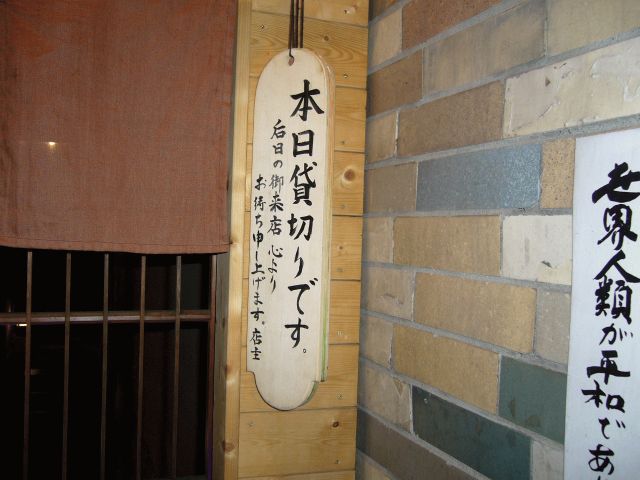 本日貸切りです。
后日の御来店心より
お待ち申し上げます。店主
世界人類が平和であ